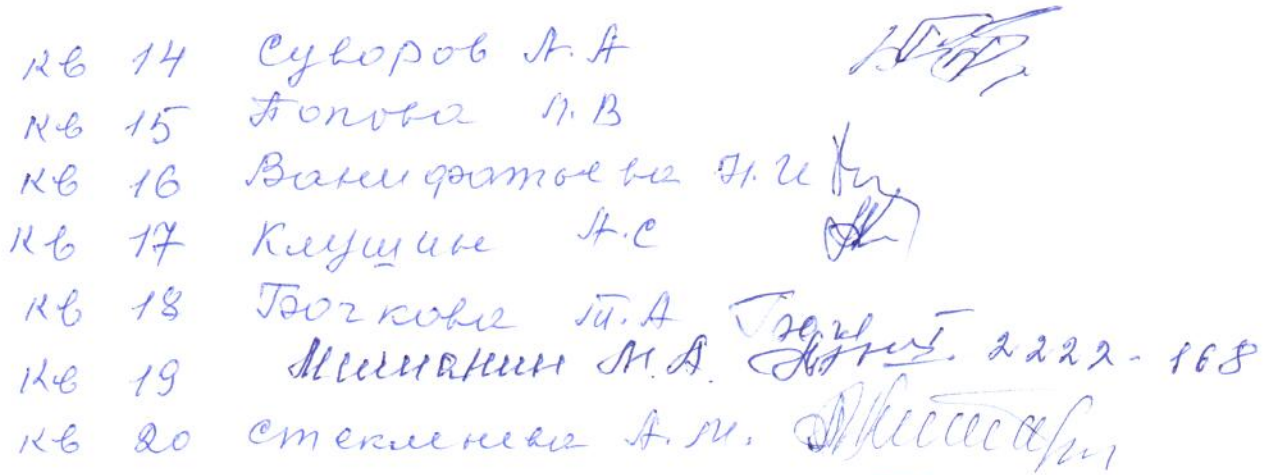 кв 14 Суворов А.А
кв 15 Попова Л.В
кв 16 Ванифатьева Н.И
кв 17 Клушин А.С
кв 18 Бочкова Т.А
кв 19 М.А. 2222-168
кв 20 Стекленева А.М.